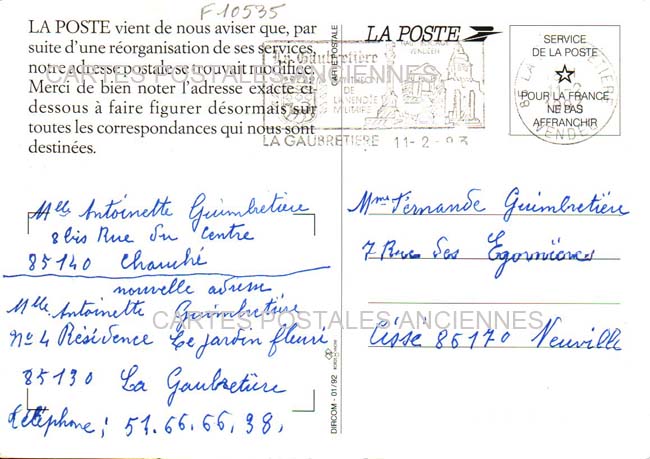 F10535
LA POSTE vient de nous aviser que, par
suite d'une réorganisation de ses services,
notre adresse postale se trouvait modifiée.
Merci de bien noter l'adresse exacte ci-
dessous à faire figurer désormais sur
toutes les correspondances qui nous sont
destinées.
CARTES POSTALES ANCIENNES
CARTE POSTALE
LA POSTE
La Gaubretière
DE LA VENDÉE
MILITAIRE
LA GAUBRETIERE 11-2-93
SERVICE
DE LA POSTE
POUR LA FRANCE
NE PAS
AFFRANCHIR
LA GAUBRETIERE
VENDEE
Melle Antoinette Guimbretière
8 bis Rue du Centre
85140 Chauché
nouvelle adresse
Melle Antoinette Guimbretière
No 4 Résidence Le jardin fleuri
85130 La Gaubretière
Téléphone; 51.66.66.38.
DIRCOM - 01/92
Mme Fernande Guimbretière
7 Rue des
Cissé 86170 Neuville
CARTES POSTALES ANCIENNES